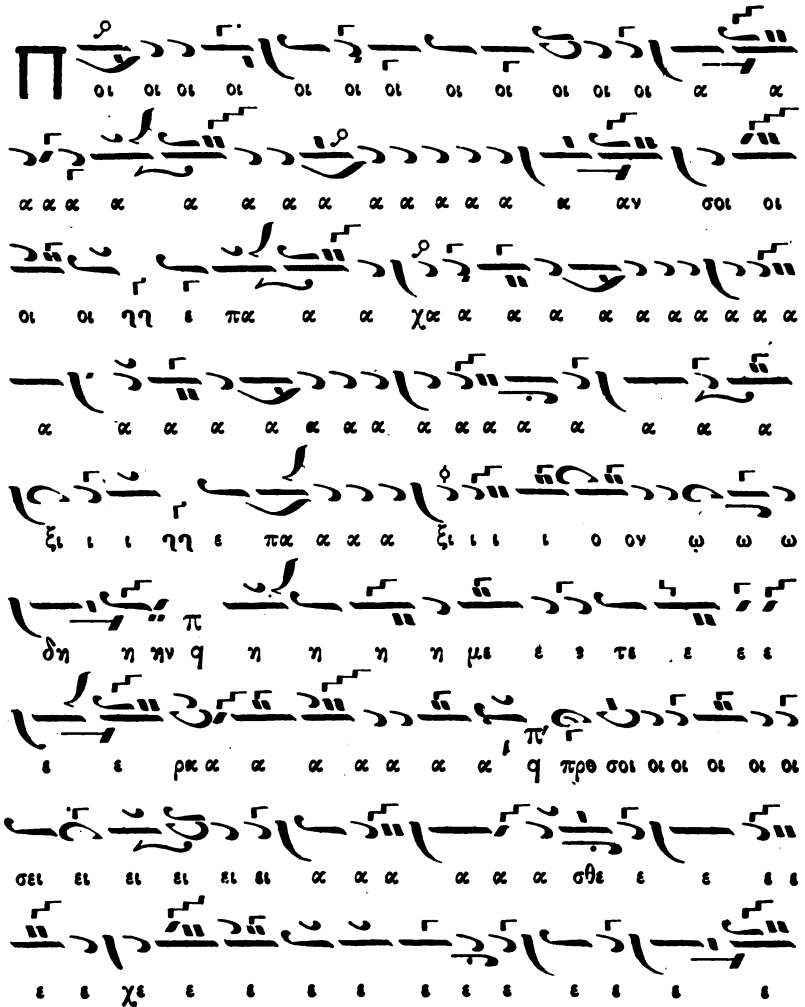 Π οι οι οι οι οι οι οι οι οι οι οι οι α α
α α α α α α α α α α α α α α αν σοι οι
οι οι ηη ε πα α α χα α α α α α α α α α
α α α α α α α α α α α α α α α
ξι ι ι ηη ε πα α α α ξι ι ι ι ο ον ω ω ω
δη η ην π q η η η η με ε ε τε ε ε ε
ε ε ρα α α α α α α α π q προ σοι οι οι οι οι οι
σει ει ει ει ει ει α α α α α α σθε ε ε ε ε
ε ε χε ε ε ε ε ε ε ε ε ε ε ε